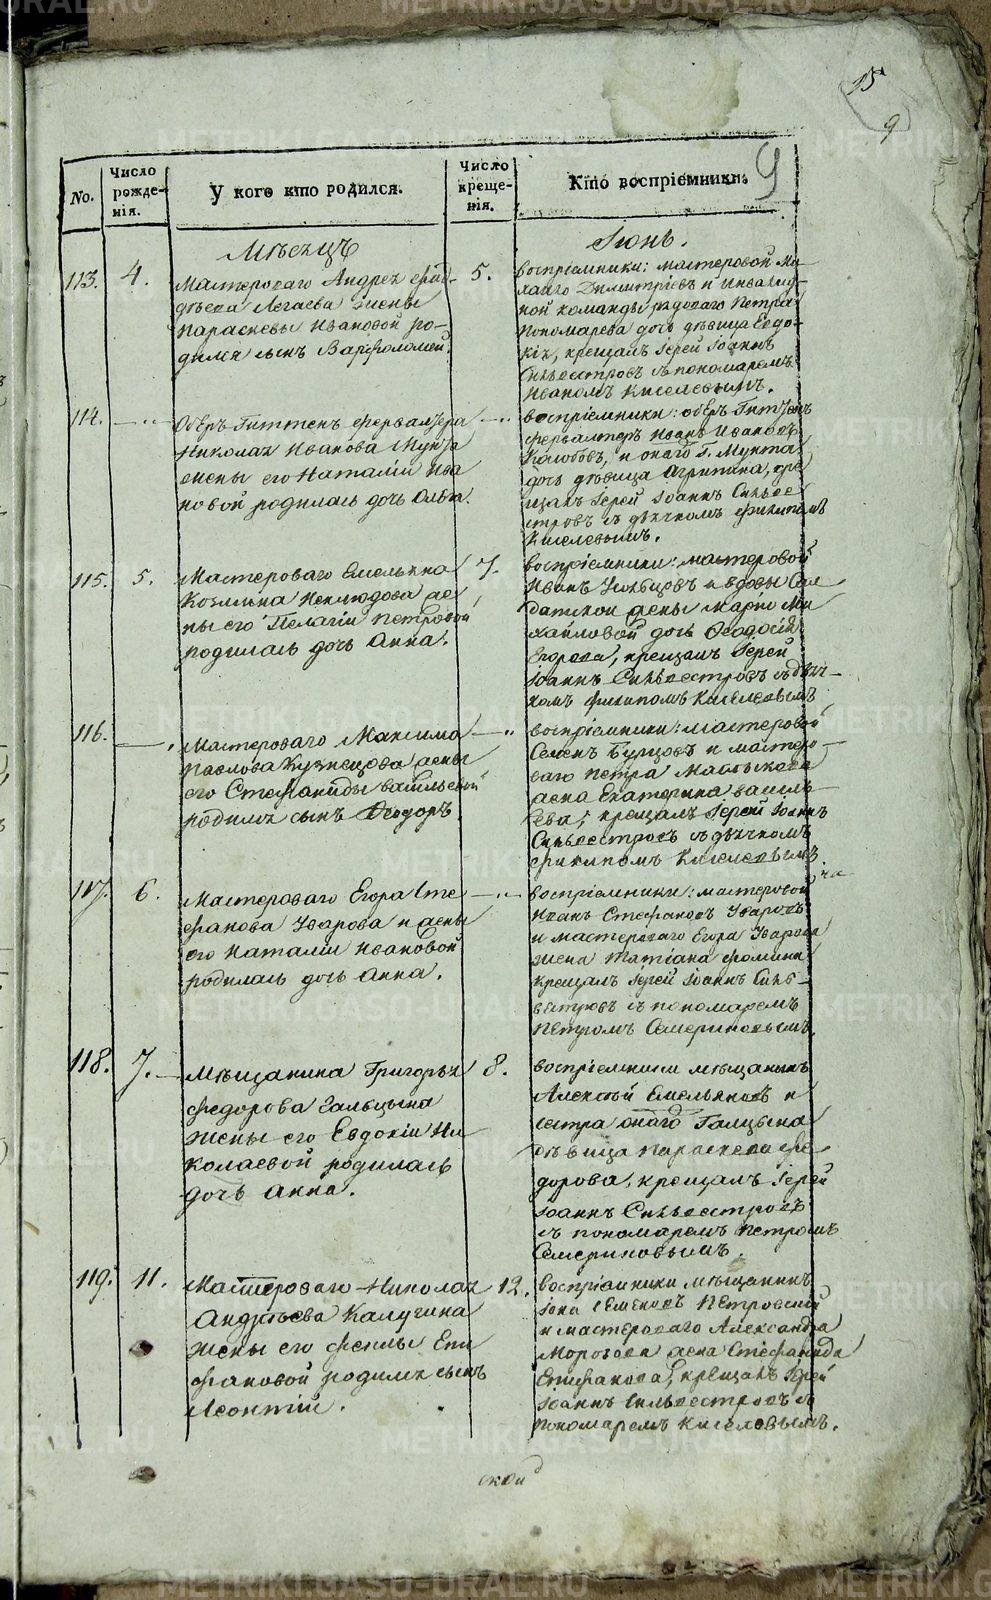 15
9
9
No.
Число рожде-нія.
У кого кто родился.
Число креще-нія.
Кто воспріемники.
Мѣсяцъ
Іюнь.
113.
4.
Мастероваго Андрея Фад-
дѣева Легаева жены
Параскевы Ивановой ро-
дился сынъ Варфоломей.
5.
воспріемники: мастеровой Ми-
хайло Димитріевъ и инвалид-
ной команды рядоваго Петра
Пономарева дочь дѣвица Евдо-
кія, крещалъ Іерей Іоаннъ
Сильвестровъ съ пономаремъ
Иваномъ Киселевымъ.
114.
Оберъ Гиттенъ Фервалтера
Николая Иванова Мунта
жены его Наталіи Ива
новой родилась дочь Ольга.
воспріемники: оберъ Гиттенъ
Фервалтеръ Иванъ Ивановъ
и онаго г. Мунта
дочь дѣвица Агрипина, кре
щалъ Іерей Іоаннъ Сильве
стровъ съ дьячкомъ Филипомъ
Киселевымъ.
115.
5.
Мастероваго Емельяна
Козмина Неклюдова же
ны его Пелагіи Петровой
родилась дочь Анна.
7.
воспріемники: мастеровой
Иванъ и вдовы Сол
датской жены Маріи Ми
хайловой дочь Ѳеодосія
Егорова, крещалъ Іерей
Іоаннъ Сильвестровъ съ дьяч-
комъ Филипомъ Киселевымъ
116.
Мастероваго Максима
Павлова Кузнецова жены
его Стефаниды Васильевой
родился сынъ Ѳеодоръ.
воспріемники: мастеровой
Семенъ Бурцовъ и мастеро-
ваго Петра
жена Екатерина Василь-
ева, крещалъ Іерей Іоаннъ
Сильвестровъ съ дьячкомъ
Филипомъ Киселевымъ.
117.
6.
Мастероваго Егора Сте
фанова Уварова и жены
его Наталіи Ивановой
родилась дочь Анна.
воспріемники: мастеровой
Иванъ Стефановъ Уваровъ
и мастероваго Егора Уварова
жена Татіана Фомина
крещалъ Іерей Іоаннъ Силь-
вѣстровъ съ пономаремъ
Петромъ Семериковымъ.
118.
7.
Мѣщанина Григорья
Федорова Гальцына
жены его Евдокіи Ни
колаевой родилась
дочь Анна.
8.
воспріемники мѣщанинъ
Алексѣй Емельяновъ и
сестра онаго Галцына
дѣвица Параскева Фе
дорова, крещалъ Іерей
Іоаннъ Сильвестровъ
съ пономаремъ Петромъ
Семериковымъ.
119.
11.
Мастероваго Николая
Андрѣева Калугина
жены его Феклы Епи
фановой родился сынъ
Леонтій.
12.
воспріемники мѣщанинъ
Іона Семеновъ Петровскій
и мастероваго Александра
Морозова жена Стефанида
Епифанова, крещалъ Іерей
Іоаннъ Сильвестровъ съ
пономаремъ Киселевымъ.
ской